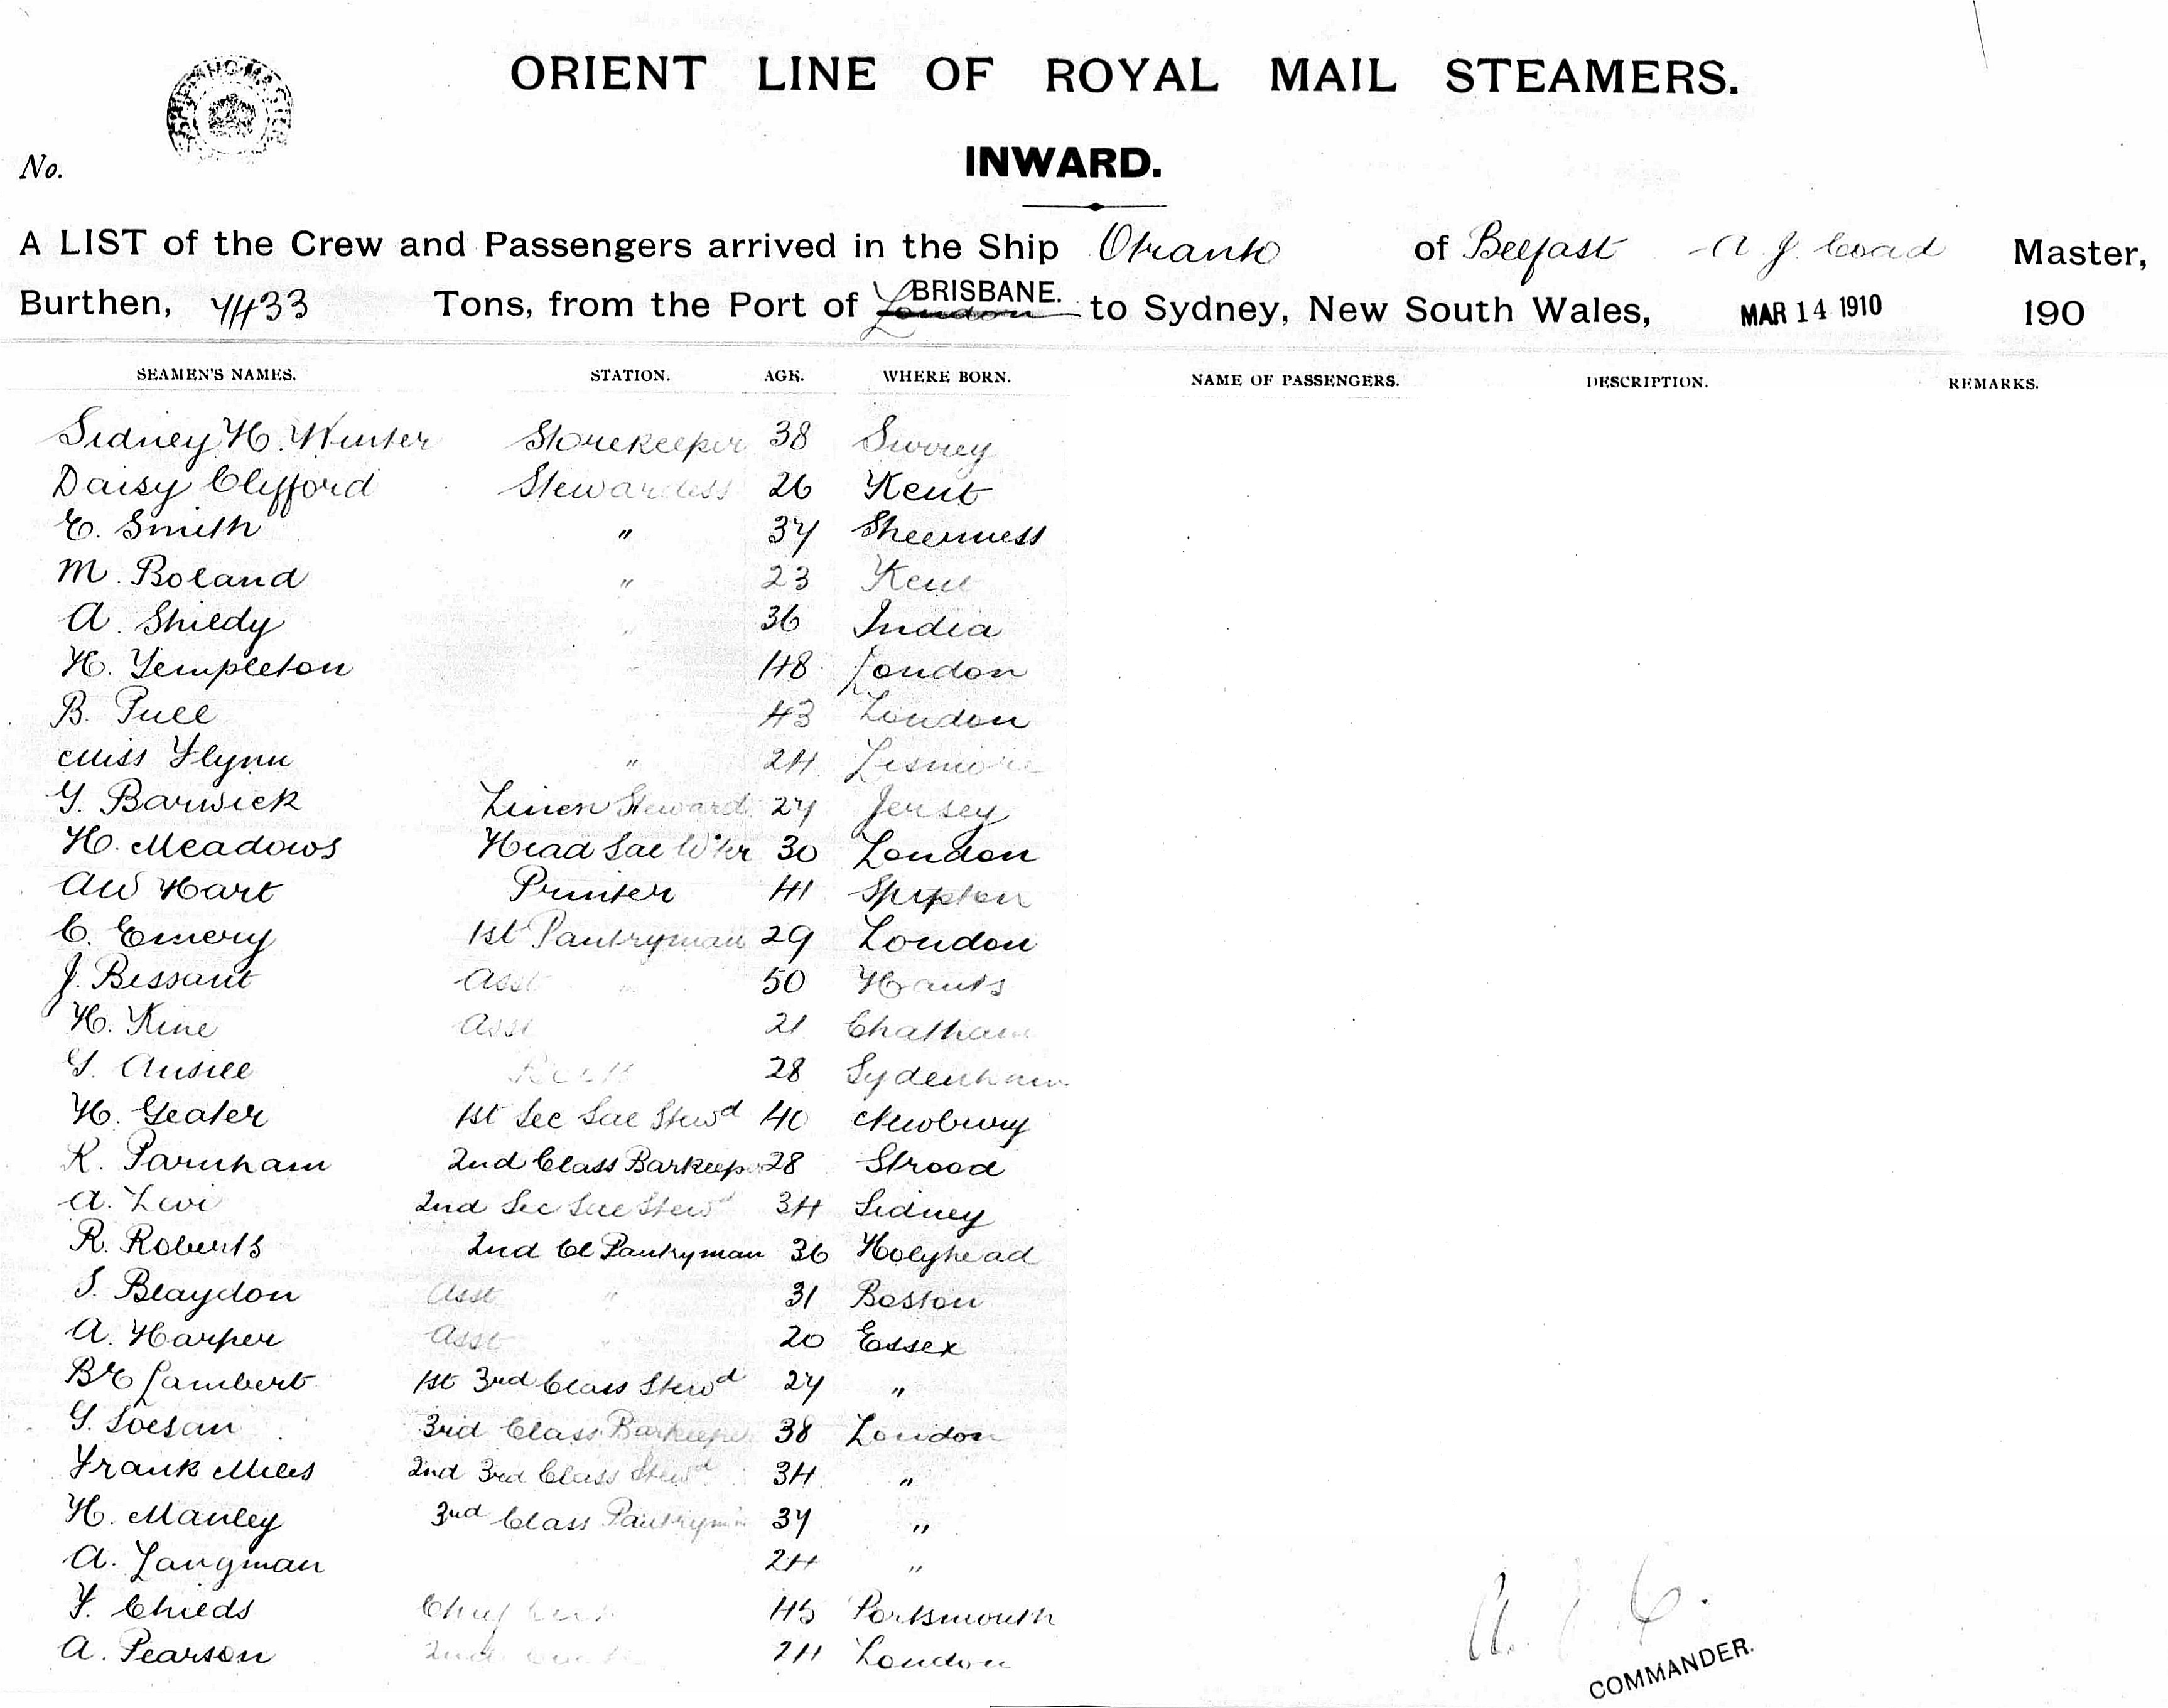 ORIENT LINE OF ROYAL MAIL STEAMERS.
INWARD.
No.
A LIST of the Crew and Passengers arrived in the Ship Otranto of Belfast A J Coad Master,
Burthen, 7433 Tons, from the Port of London BRISBANE. to Sydney, New South Wales, MAR 14 1910 190
SEAMEN'S NAMES. STATION. AGE. WHERE BORN. NAME OF PASSENGERS. DESCRIPTION. REMARKS.
Sidney H. Winter Storekeeper 38 Surrey
Daisy Clifford Stewardess 26 Kent
E. Smith " 37 Sheerness
M. Boland " 23 Kent
A. Shiedy " 36 India
H. Templeton " 48 London
B. Pull 43 London
Miss Flynn " 24 Lismore
G. Barwick Linen Steward 27 Jersey
H. Meadows Head Sal Wter 30 London
AW Hart Printer 41
C. Emery 1st Pantryman 29 London
J. Bessant Asst " 50 Hants
H. Kine Asst 21 Chatham
G. Ansell 28 Sydenham
H. Geater 1st Sec Sal Stewd 40 Newbury
R. Parnham 2nd Class Barkeep 28 Strood
A. Levi 2nd Sec Sal Stewd 34 Sidney
R. Roberts 2nd Cl Pantryman 36 Holyhead
S. Blaydon Asst " 31 Boston
A. Harper Asst " 20 Essex
B E Lambert 1st 3rd Class Stewd 27 "
G. Loesan 3rd Class Barkeeper 38 London
Frank Miles 2nd 3rd Class Stewd 34 "
H. Manley 3rd Class Pantryman 37 "
A. Langman 24 "
F. Childs Chief 45 Portsmouth
A. Pearson 2nd 24 London
A. J. C.
COMMANDER.